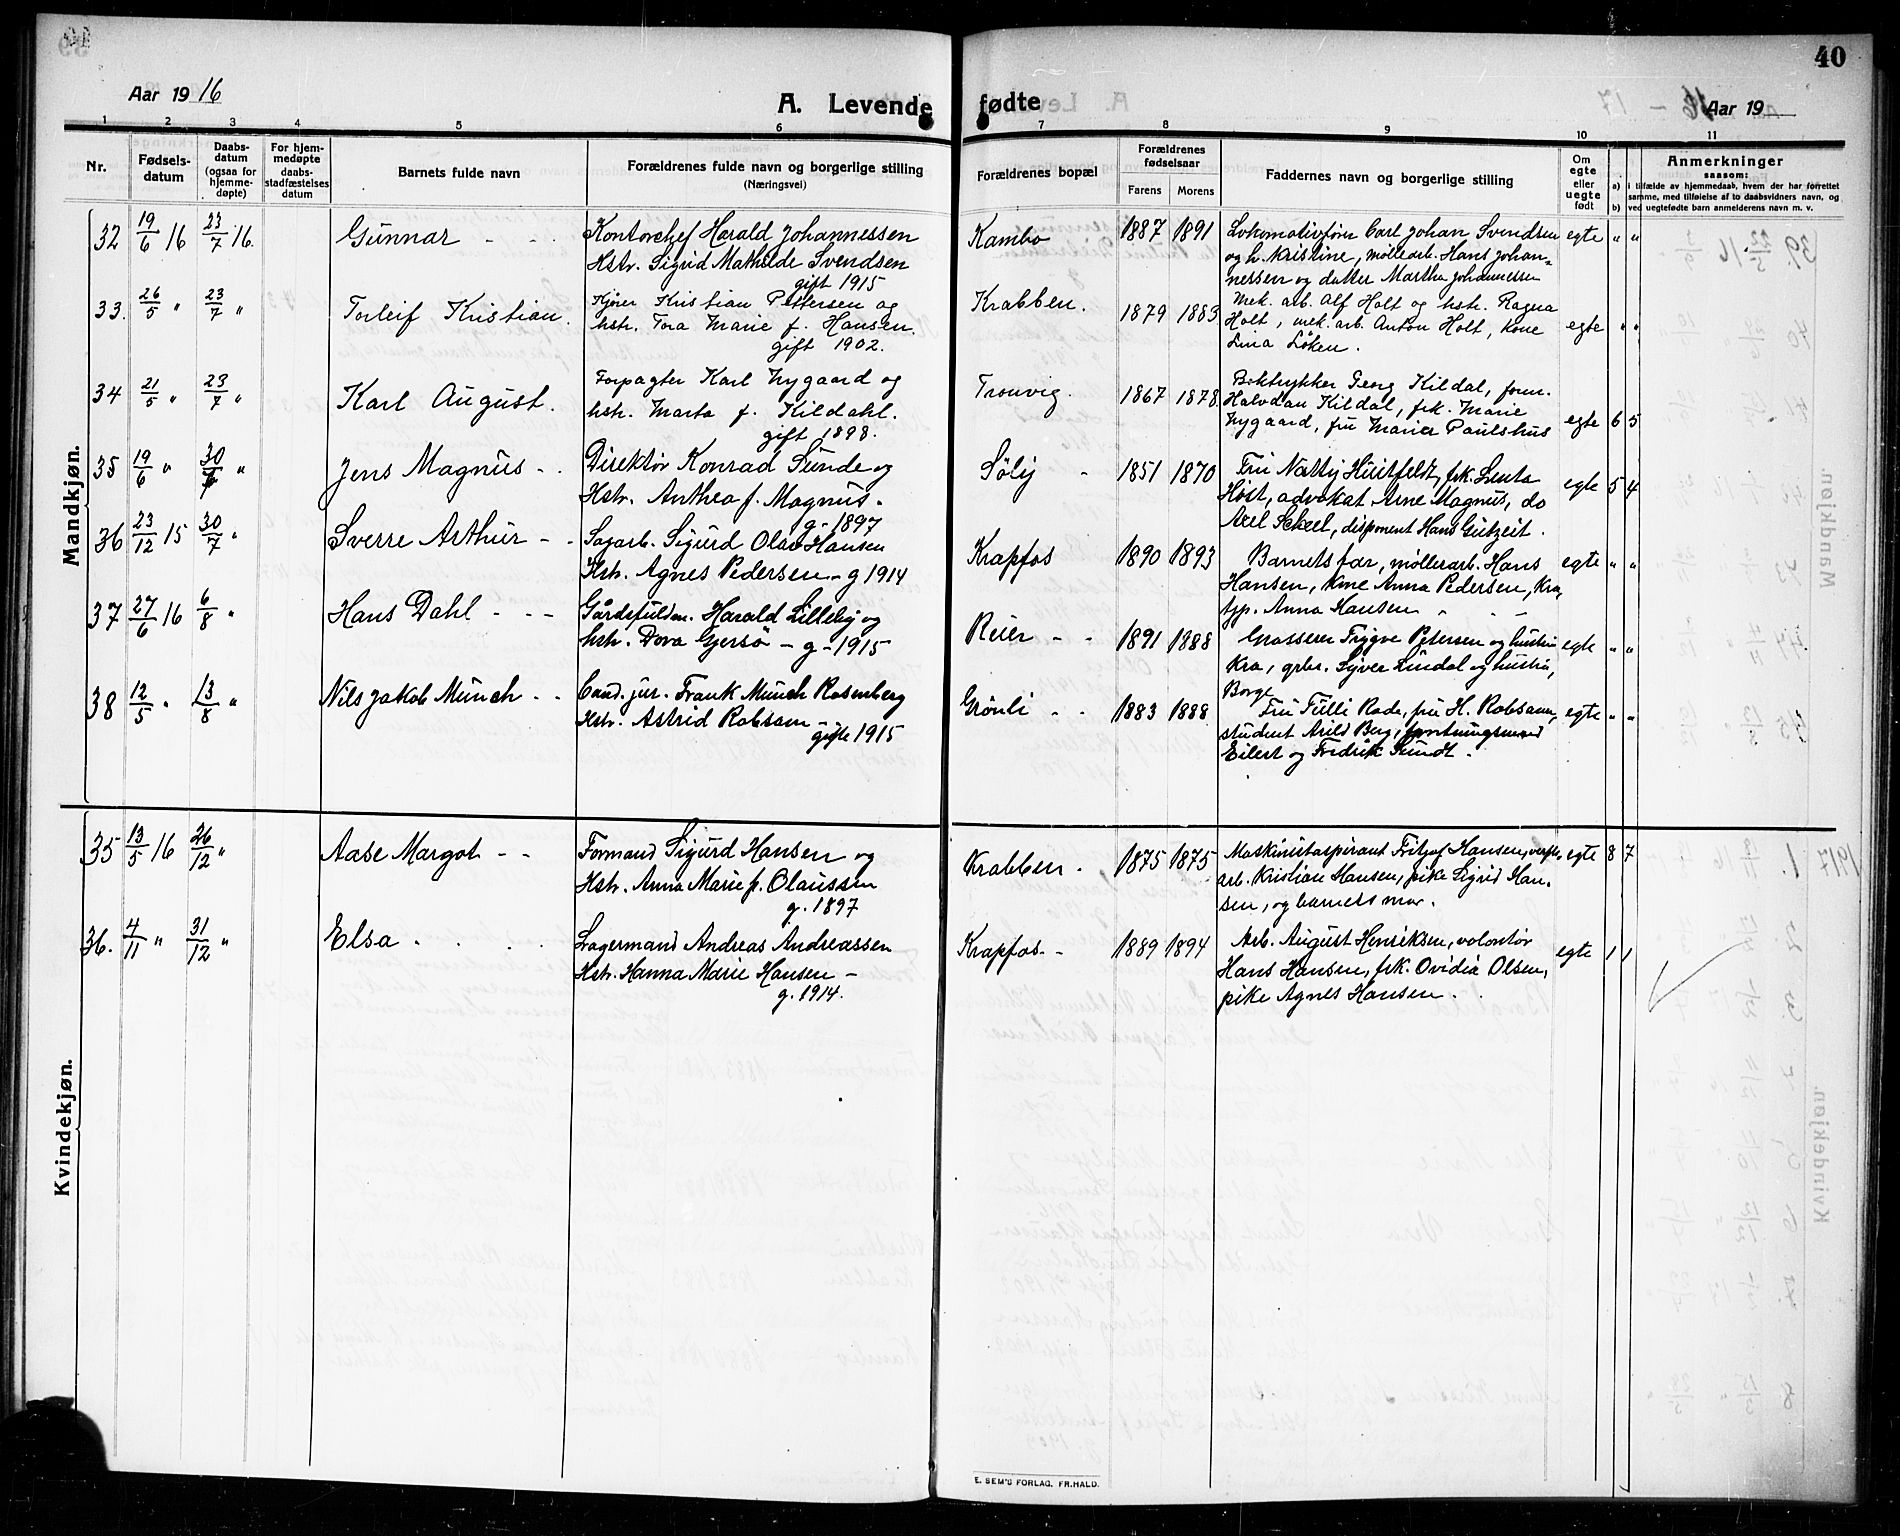 40
Aar 1916
A. Levende fødte
Aar 19
1 2 3 4 5 6 7 8 9 10 11
Nr.
Fødsels-
datum
Daabs-
datum
(ogsaa for
hjemme-
døpte)
For hjem-
medøpte
daabs-
stadfæstelses
datum
Barnets fulde navn
Forældrenes fulde navn og borgerlige stilling
(Næringsvei)
Forældrenes bopæl
Forældrenes
fødselsaar
Farens Morens
Faddernes navn og borgerlige stilling
Om
egte
eller
uegte
født
a)
b)
Anmerkninger
saasom:
i tilfælde av hjemmedaab, hvem der har forrettet
samme, med tilføielse af to daabsvidners navn, og
ved uegtefødte barn anmelderens navn m. v.
Mandkjøn.
32 19/6 16 23/7 16. Gunnar - - -
Kontorchef Harald Johannessen
Hstr. Sigrid Mathilde Svendsen
gift 1915
Kambo 1887 1891
Lokomotivfører Carl Johan Svendsen
og h. Kristine, møllearb. Hans Johan-
nessen og datter Martha Johannessen
egte " "
33. 26/5 " 23/7 " Torleif Kristian.
Kjører Kristian Pettersen og
hstr. Tora Marie f. Hansen.
gift 1902.
Krabben. 1879 1883
Mek. arb. Alf Holt og hstr. Ragna
Holt, mek. arb. Anton Holt, kone
Lina Løken.
egte " "
34 21/5 " 23/7 " Karl August.
Forpagter Karl Nygaard og
hstr. Marta f. Kildahl.
gift 1898.
Tronvig. 1867 1878.
Boktrykker Georg Kildal, form.
Halvdan Kildal, frk. Marie
Nygaard, fru Marie Paulshus
egte 6 5
35 19/6 " 30/7 " Jens Magnus - -
Direktør Konrad Sunde og
Hstr. Anthea f. Magnus -
g - 1897
Søly - 1851 1870
Fru Natty Huitfeldt, frk. Lenta
Høst, advokat Arne Magnus, do
Axel Scheel, disponent Hans Gutzeit.
egte 5 4
36 23/12 15 30/7 " Sverre Arthur - -
Sagarb. Sigurd Olav Hansen
Hstr. Agnes Pedersen - g 1914
Krapfos 1890 1893
Barnets far, møllerarb. Hans
Hansen, kone Anna Pedersen, Kra,
typ. Anna Hansen
egte " "
37 27/6 16 6/8 " Hans Dahl - - -
Gårdsfuldm. Harald Lilleby og
hstr. Dora Gjersø - g - 1915
Reier - - 1891 1888
Grosserer Trygve Petersen og hustru
Kra, grbr. Syver Lindal og hustru,
Borge
egte " "
38 12/5 " 13/8 " Nils Jakob Münch - -
Cand. jur. Frank Münch Rosenberg
Hstr. Astrid Robsam -
gifte 1915
Grønli - - 1883 1888
Fru Tulli Rode, fru H. Robsam,
student Arild Berg,
Eilert og Fredrik Sundt.
egte " "
Kvindekjøn.
35 13/5 16 26/12 " Aase Margot - -
Formand Sigurd Hansen og
Hstr. Anna Marie f. Olaussen
g. 1897
Krabben - 1875 1875
Maskinistaspirant Fritjof Hansen, verfts-
arb. Kristian Hansen, pike Sigrid Han-
sen, og barnets mor.
egte 8 7
36. 4/11 " 31/12 " Elsa . . . .
Lagermand Andreas Andreassen
Hstr. Hanna Marie Hansen -
g. 1914.
Krapfos - - 1889 1894
Arb. August Henriksen, volontør
Hans Hansen, frk. Ovidia Olsen,
pike Agnes Hansen.
egte 1 1
E. SEM'S FORLAG, FR.HALD.